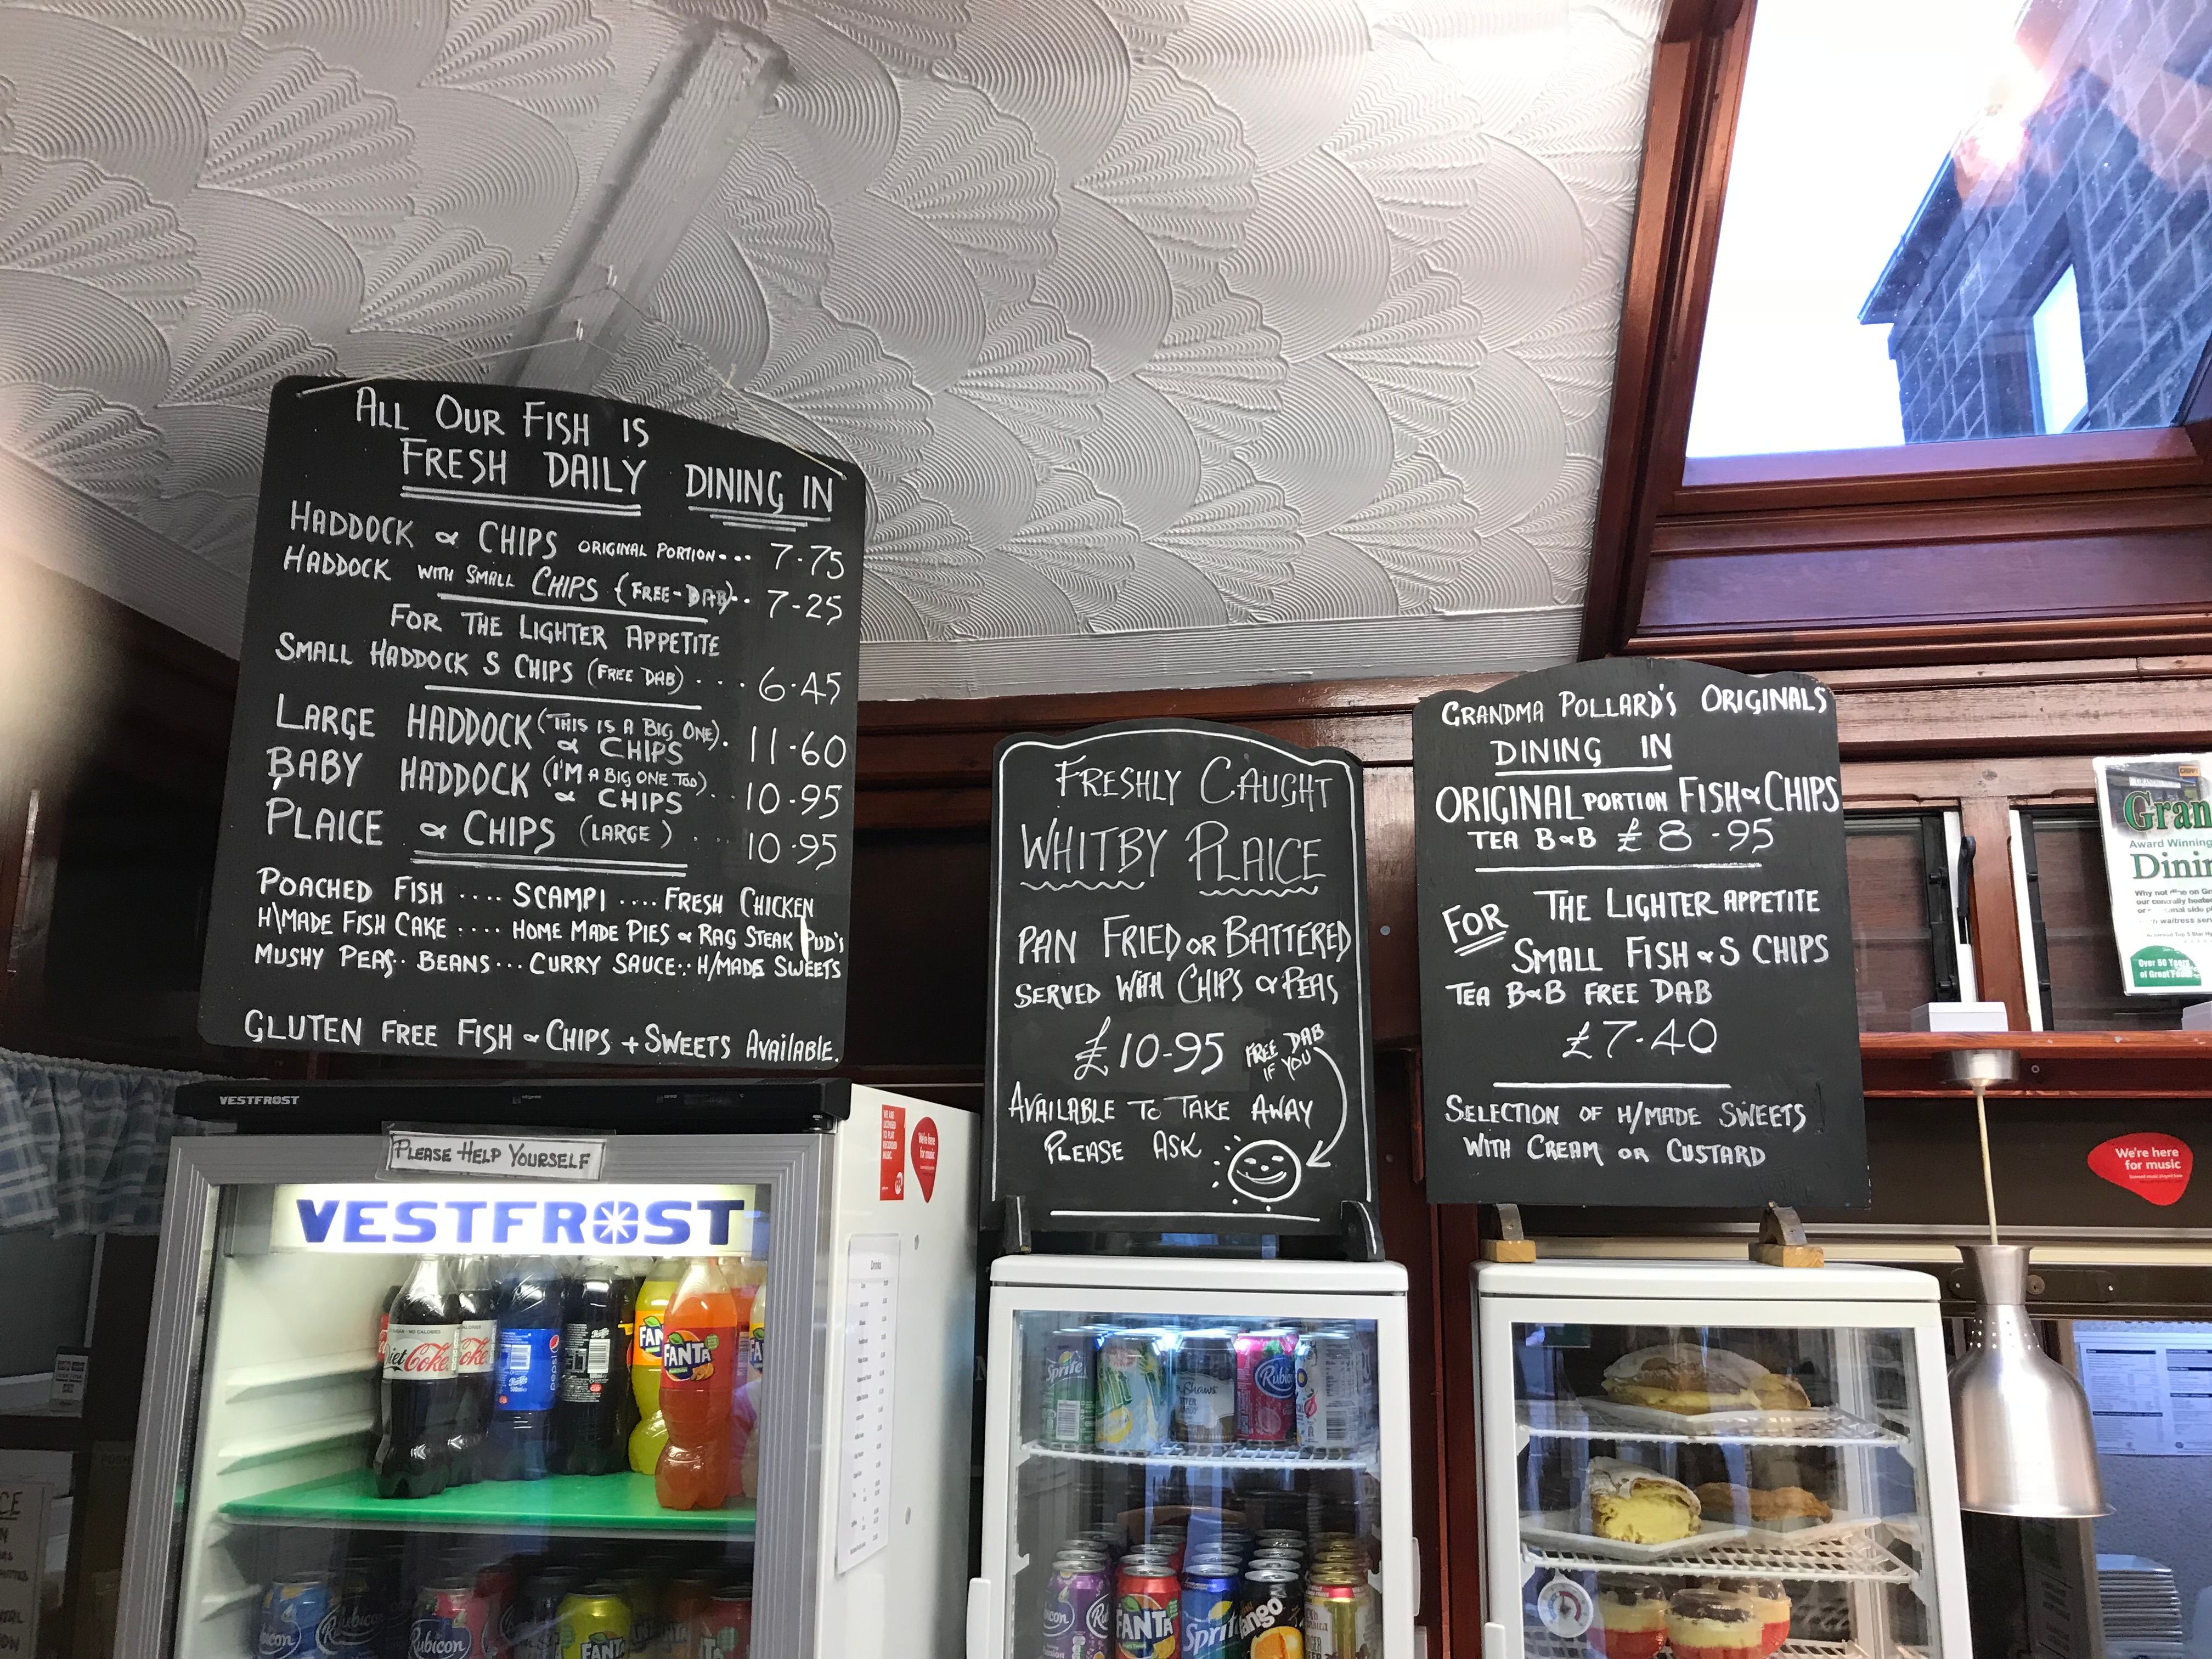 ALL OUR FISH IS
FRESH DAILY DINING IN
HADDOCK & CHIPS ORIGINAL PORTION... 7-75
HADDOCK WITH SMALL CHIPS (FREE-DAB).. 7-25
FOR THE LIGHTER APPETITE
SMALL HADDOCK S CHIPS (FREE DAB) . . . 6-45
LARGE HADDOCK (THIS IS A BIG ONE). 11-60
& CHIPS
BABY HADDOCK (I'M A BIG ONE TOO). . 10-95
& CHIPS
PLAICE & CHIPS (LARGE) . . 10-95
POACHED FISH .... SCAMPI .... FRESH CHICKEN
H\MADE FISH CAKE .... HOME MADE PIES & RAG STEAK PUD'S
MUSHY PEAS.. BEANS... CURRY SAUCE.. H/MADE SWEETS
GLUTEN FREE FISH & CHIPS + SWEETS AVAILABLE.
FRESHLY CAUGHT
WHITBY PLAICE
PAN FRIED OR BATTERED
SERVED WITH CHIPS & PEAS
£10-95 FREE DAB
IF YOU
AVAILABLE TO TAKE AWAY
PLEASE ASK
GRANDMA POLLARD'S ORIGINALS
DINING IN
ORIGINAL PORTION FISH & CHIPS
TEA B&B £8-95
FOR THE LIGHTER APPETITE
SMALL FISH & S CHIPS
TEA B&B FREE DAB
£7-40
SELECTION OF H/MADE SWEETS
WITH CREAM OR CUSTARD
VESTFROST
PLEASE HELP YOURSELF
VESTFROST
We're here
for music
We're here
for music
Gran
Award Winning
Dinin
Why not
Over 60 Years
of Great Food
Drinks
Diet Coke
Coke
pepsi
FANTA
FANTA
Sprite
Shaws
Rubicon
Rubicon
Rubicon
FANTA
FANTA
Sprite